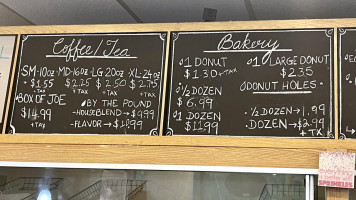 Coffee/Tea
SM-10oz-MD-16oz-LG 20oz-XL-24oz
$1.55 $2.25 $2.50 $2.75
+TAX +TAX +TAX +TAX
BOX OF JOE
$14.99
+TAX
BY THE POUND
-HOUSEBLEND→$9.99
-FLAVOR→$10.99
Bakery
1 DONUT
$1.30+TAX
1/2 DOZEN
$6.99
1 DOZEN
$11.99
1 LARGE DONUT
$2.35
DONUT HOLES
1/2 DOZEN→1.99
DOZEN→$2.99
+TAX
SPRINKLES